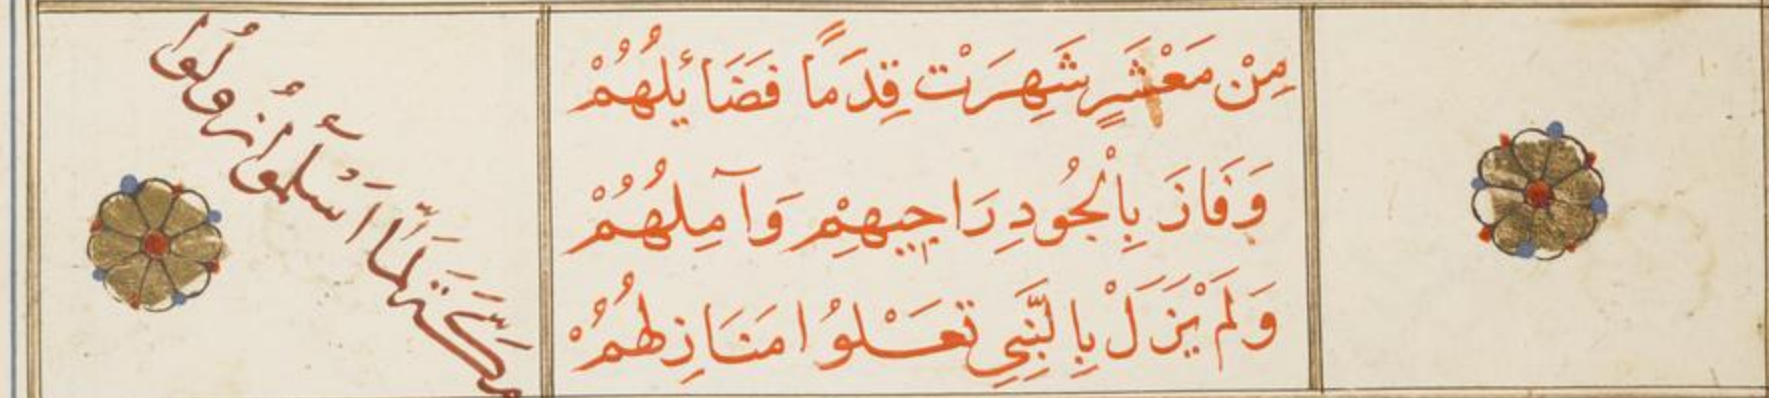 مِنْ مَعْشَرٍ شَهِرَتْ قِدَمًا فَضَائِلُهُمْ
وَفَازَ بِالْجُودِ رَاجِيهِمْ وَآمِلُهُمْ
وَلَمْ يَزَلْ بِالنَّبِي تَعْلُوا مَنَازِلُهُمْ
بِبَطْنِ مَكَّةَ لَمَّا أَسْلَمُوا زُولُوا